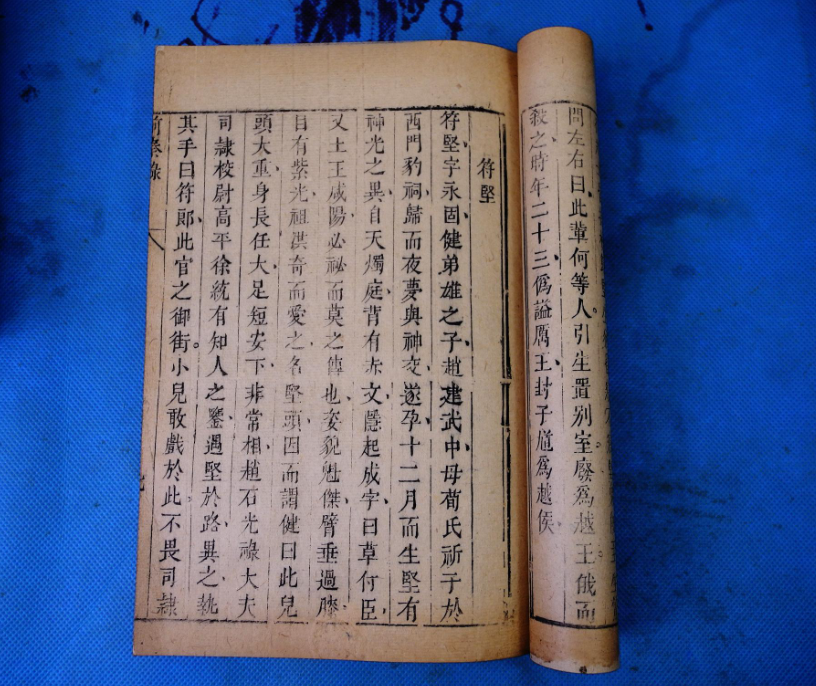 問左右曰此輩何等人引生置别室廢爲越王俄而
殺之時年二十三僞謚厲王封子馗爲越侯
符堅
符堅字永固健弟雄之子趙建武中母荀氏祈子於
西門豹祠歸而夜夢與神交遂孕十二月而生堅有
神光之異自天燭庭背有赤文隱起成字曰草付臣
又土王咸陽必祕而莫之傳也姿貌魁傑臂垂過膝
目有紫光祖洪奇而愛之名堅頭因而謂健曰此兒
頭大重身長任大足短安下非常相趙石光祿大夫
司隷校尉高平徐統有知人之鑒遇堅於路異之執
其手曰符郎此官之御街小兒敢戲於此不畏司隷
前秦錄